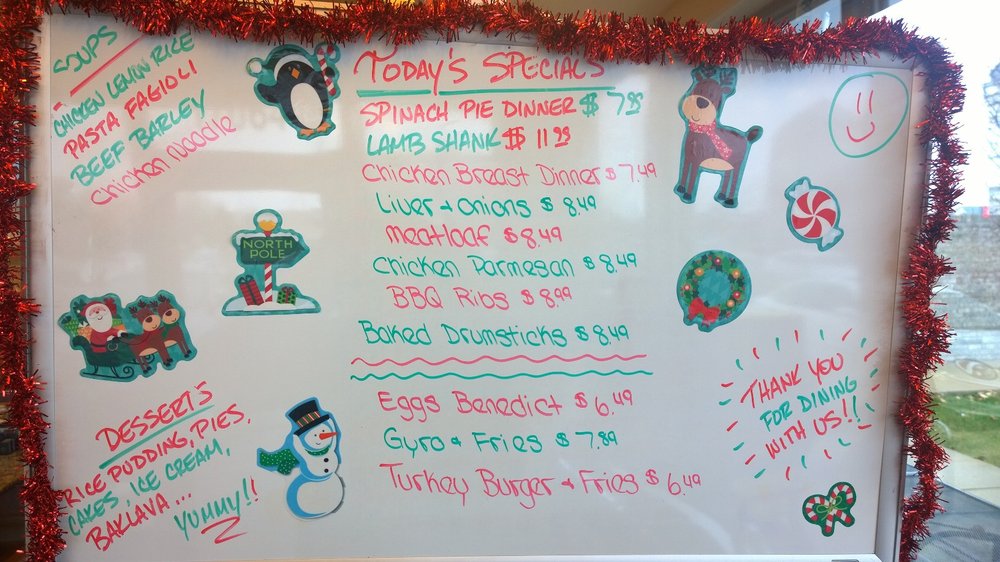 SOUPS
CHICKEN LEMON RICE
PASTA FAGIOLI
BEEF BARLEY
chicken noodle
TODAY'S SPECIALS
SPINACH PIE DINNER $ 7.99
LAMB SHANK $ 11.99
Chicken Breast Dinner $ 7.49
Liver + Onions $ 8.49
meatloaf $ 8.49
Chicken Parmesan $ 8.49
BBQ Ribs $ 8.99
Baked Drumsticks $ 8.49
Eggs Benedict $ 6.49
Gyro + Fries $ 7.89
Turkey Burger + Fries $ 6.49
NORTH
POLE
DESSERTS
RICE PUDDING, PIES,
CAKES, ICE CREAM,
BAKLAVA...
YUMMY!!
THANK YOU
FOR DINING
WITH US!!